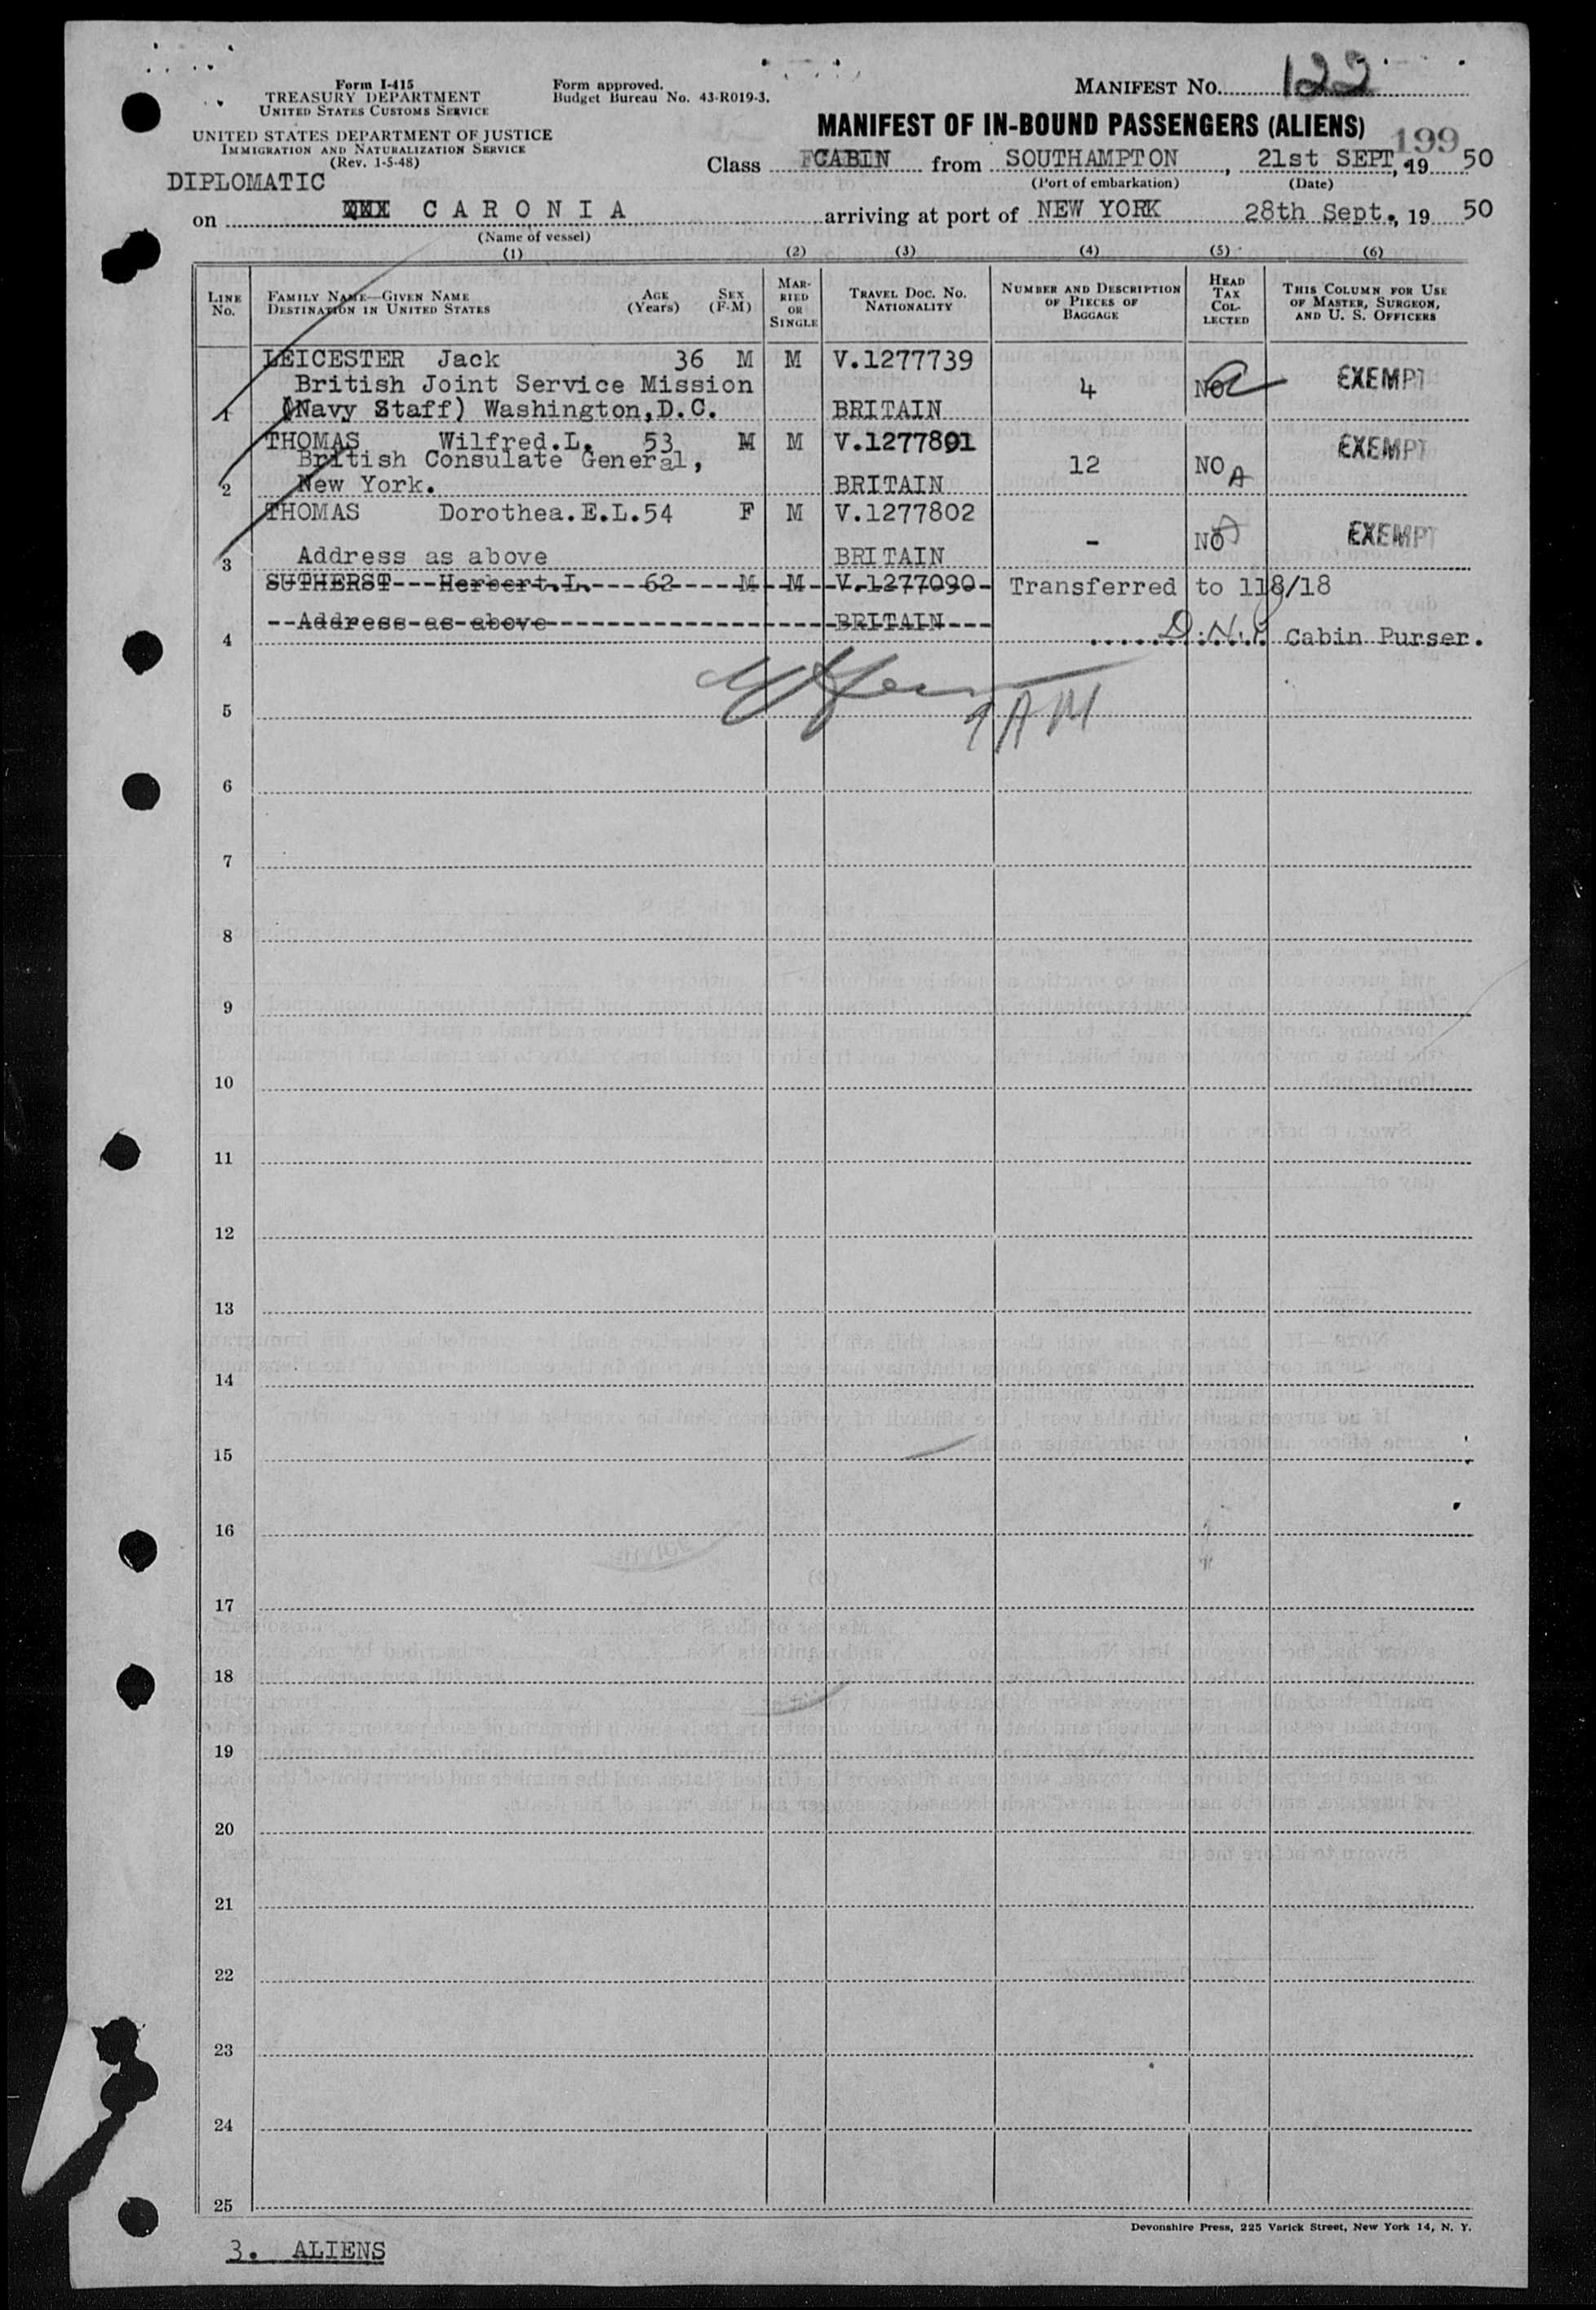 Form I-415
TREASURY DEPARTMENT
UNITED STATES CUSTOMS SERVICE
Form approved.
Budget Bureau No. 43-R019-3.
MANIFEST No. 122
UNITED STATES DEPARTMENT OF JUSTICE
IMMIGRATION AND NATURALIZATION SERVICE
(Rev. 1-5-48)
MANIFEST OF IN-BOUND PASSENGERS (ALIENS)
199
DIPLOMATIC
Class CABIN from SOUTHAMPTON, 21st SEPT, 19 50
(Port of embarkation) (Date)
on CARONIA arriving at port of NEW YORK 28th Sept., 19 50
(Name of vessel)
(1) (2) (3) (4) (5) (6)
LINE No. FAMILY NAME—GIVEN NAME DESTINATION IN UNITED STATES AGE (Years) SEX (F-M) MARRIED OR SINGLE TRAVEL DOC. NO. NATIONALITY NUMBER AND DESCRIPTION OF PIECES OF BAGGAGE HEAD TAX COLLECTED THIS COLUMN FOR USE OF MASTER, SURGEON, AND U. S. OFFICERS
LEICESTER Jack 36 M M V.1277739
British Joint Service Mission 4 NO EXEMPT
1 (Navy Staff) Washington,D.C. BRITAIN
THOMAS Wilfred.L. 53 M M V.1277801 EXEMPT
British Consulate General, 12 NO A
2 New York. BRITAIN
THOMAS Dorothea.E.L. 54 F M V.1277802
- NO EXEMPT
3 Address as above BRITAIN
SUTHERST---Herbert.L.---62----M--M--V.1277090- Transferred to 118/18
--Address-as-above---BRITAIN---
4 Cabin Purser.
5 AM
6
7
8
9
10
11
12
13
14
15
16
17
18
19
20
21
22
23
24
25
Devonshire Press, 225 Varick Street, New York 14, N. Y.
3. ALIENS